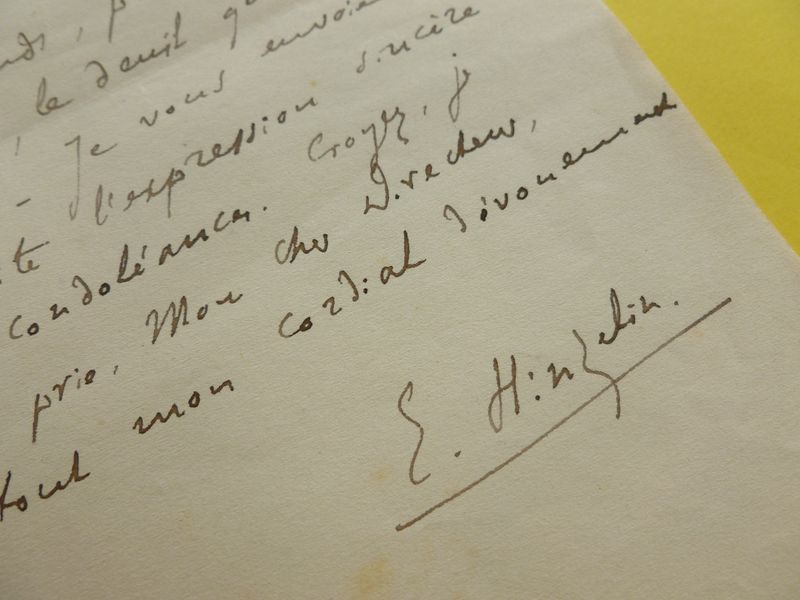 le deuil
! Je vous envoie
l'expression sincère
condoléances. Croyez, je
prie, Mon cher Directeur,
tout mon cordial dévouement
E. Hinzelin.